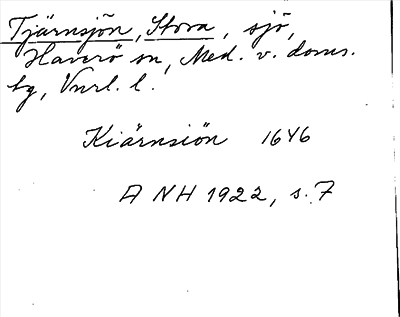 Tjärnsjön, Stora, sjö,
Haverö sn, Med. v. doms.
hg, Vnrl. l.
Kiärnsiön 1646
A NH 1922, s. 7